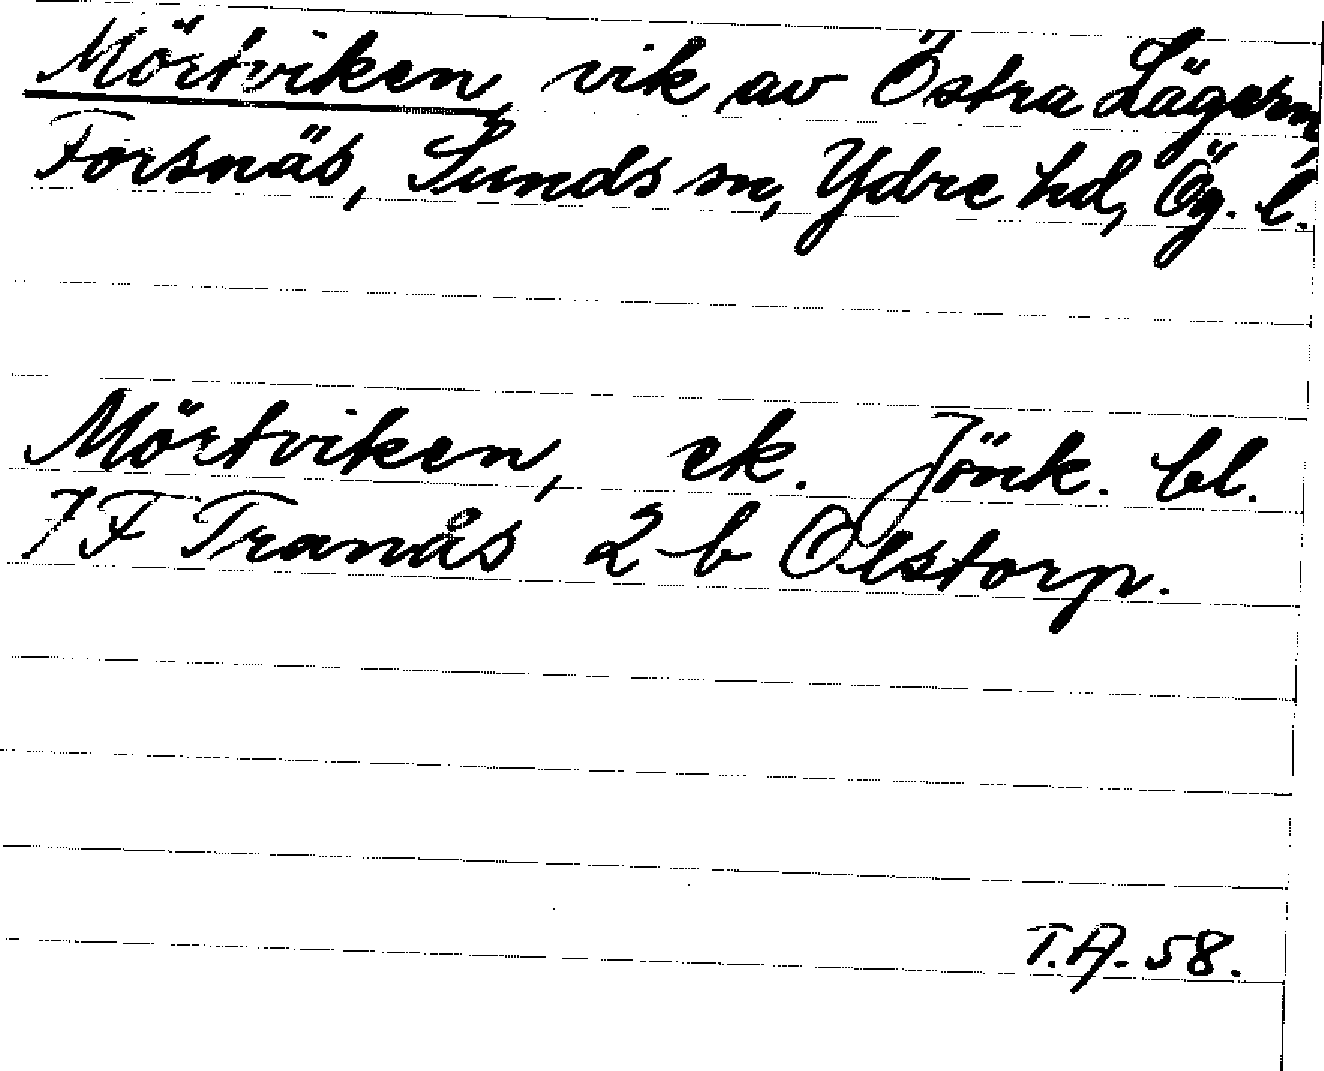 Mörtviken, vik av Östra Lägern,
Forsnäs, Sunds sn, Ydre hd, Ög. l.
Mörtviken, ek. Jönk. bl.
7F Tranås 2 b Olstorp.
T.A. 58.